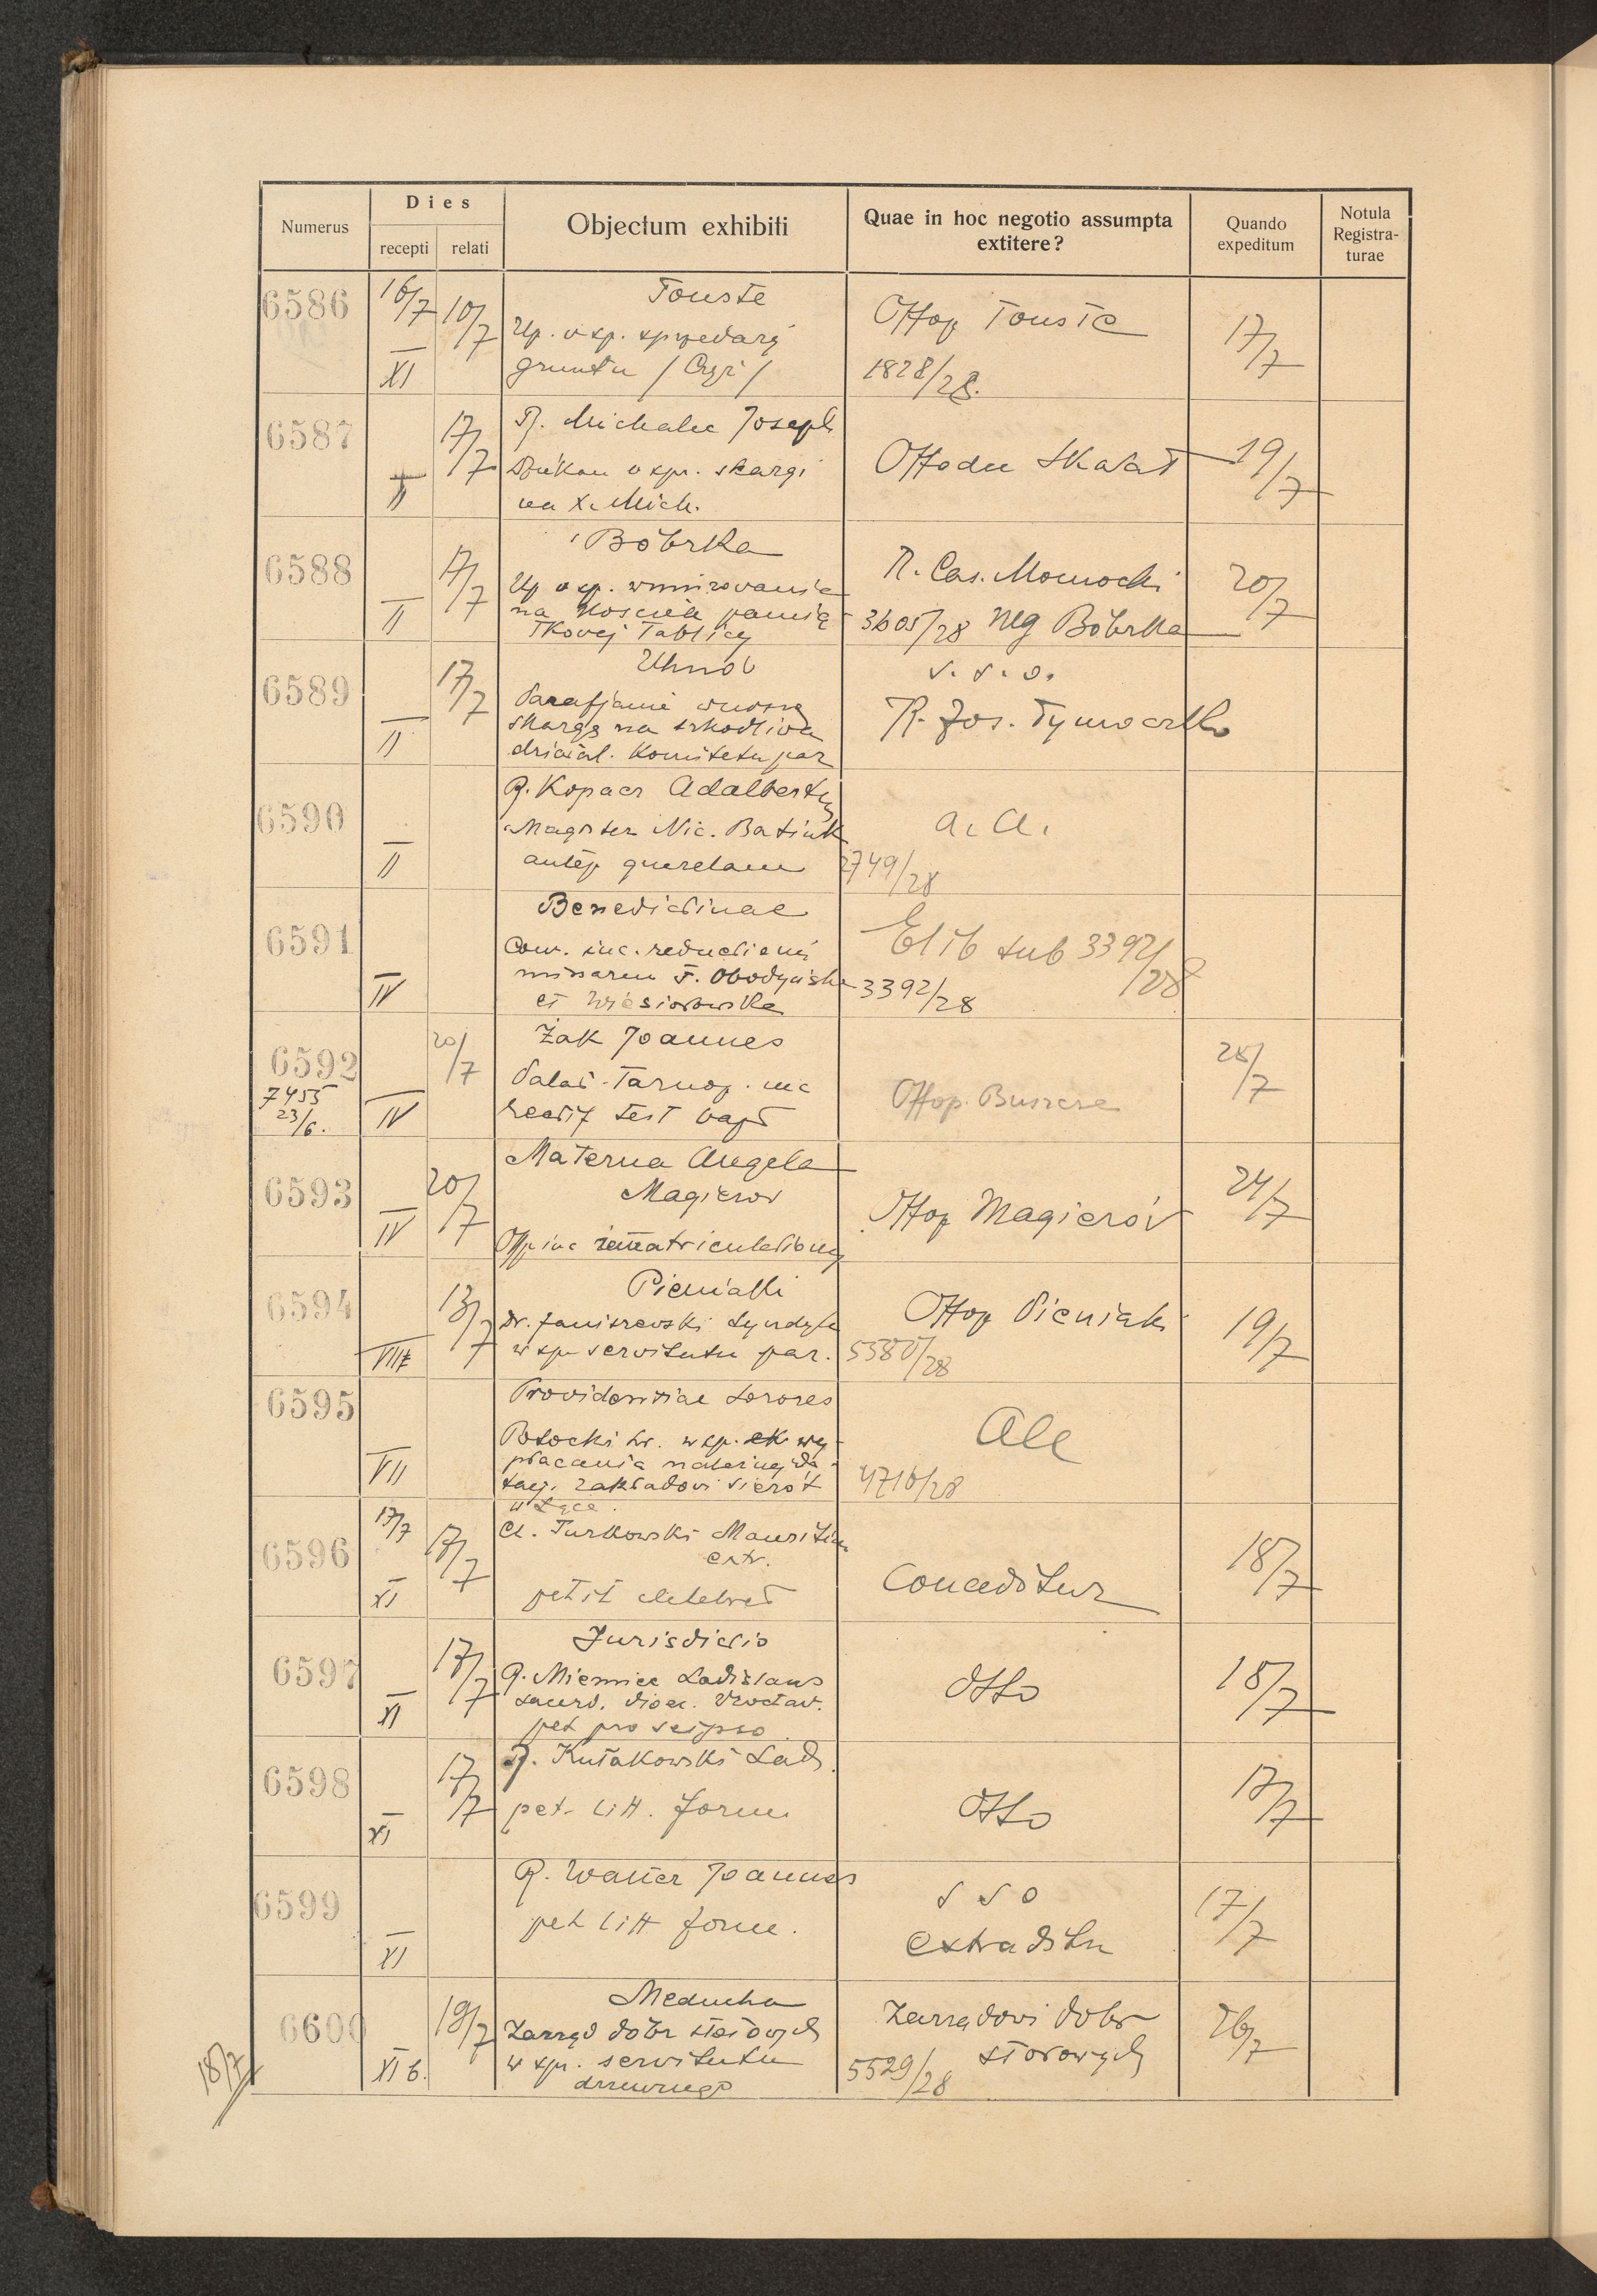 Numerus
Dies
recepti relati
Objectum exhibiti
Quae in hoc negotio assumpta extitere?
Quando expeditum
Notula Registra-turae
6586 16/7 10/7 XI
Touste
Up. w sp. sprzedaży
gruntu
Offop Touste
1828/28.
17/7
6587 17/7 II
R. Michalec Joseph
Dziekan w spr. skargi
na X. Mich.
Offodec Skałat
19/7
6588 17/7 II
Bóbrka
Up w sp. wmurowania
na kościele pamią-
tkowej tablicy
R. Cas.
3605/28 Bóbrka
20/7
6589 17/7 II
Uhnów
Parafjanie wnoszą
skargę na szkodliwą
działal. Komitetu par
s. s. o.
R. Jos.
6590 II
R. Kopacz Adalbertus
Magister Nic. Batiuk
querelam
a. a.
2749/28
6591 IV
Benedictinae
Conv. inc. reductionis
missarum F.
et
Elib sub 3392/28
3392/28
6592 20/7
7455
23/6. IV
Żak Joannes
Palat. Tarnop. inc
rectif test bapt
Offop. Buszcze
25/7
6593 20/7 IV
Materna Angela
Magierov
Offp inc
Offop Magierów
24/7
6594 13/7 VIII
Pieniaki
Dr. Janiszewski Syndyk
w sp. servitutu par.
Offop Pieniaki
5380/28
19/7
6595 VII
Providentiae Sorores
Potocki hr. w sp. wy-
płacania należnej do-
tacj. zakładowi sierot
w Łące.
4716/28
6596 17/7 17/7 XI
Cl. Turkowski Mauritius
petit celebret
Conceditur
18/7
6597 17/7 XI
Jurisdictio
R. Ladislaus
sacerd. dioec.
pet pro seipso
Otto
18/7
6598 17/7 XI
R. Kułakowski Lad.
pet. litt. form.
Otto
17/7
6599 XI
R. Walter Joannes
pet litt form.
s s o
extraditu
17/7
6600 18/7 XI b.
Meducha
Zarząd dóbr stołowych
w spr. servitutu
drzewnego
Zarządowi dóbr
stołowych
5529/28
26/7
18/7